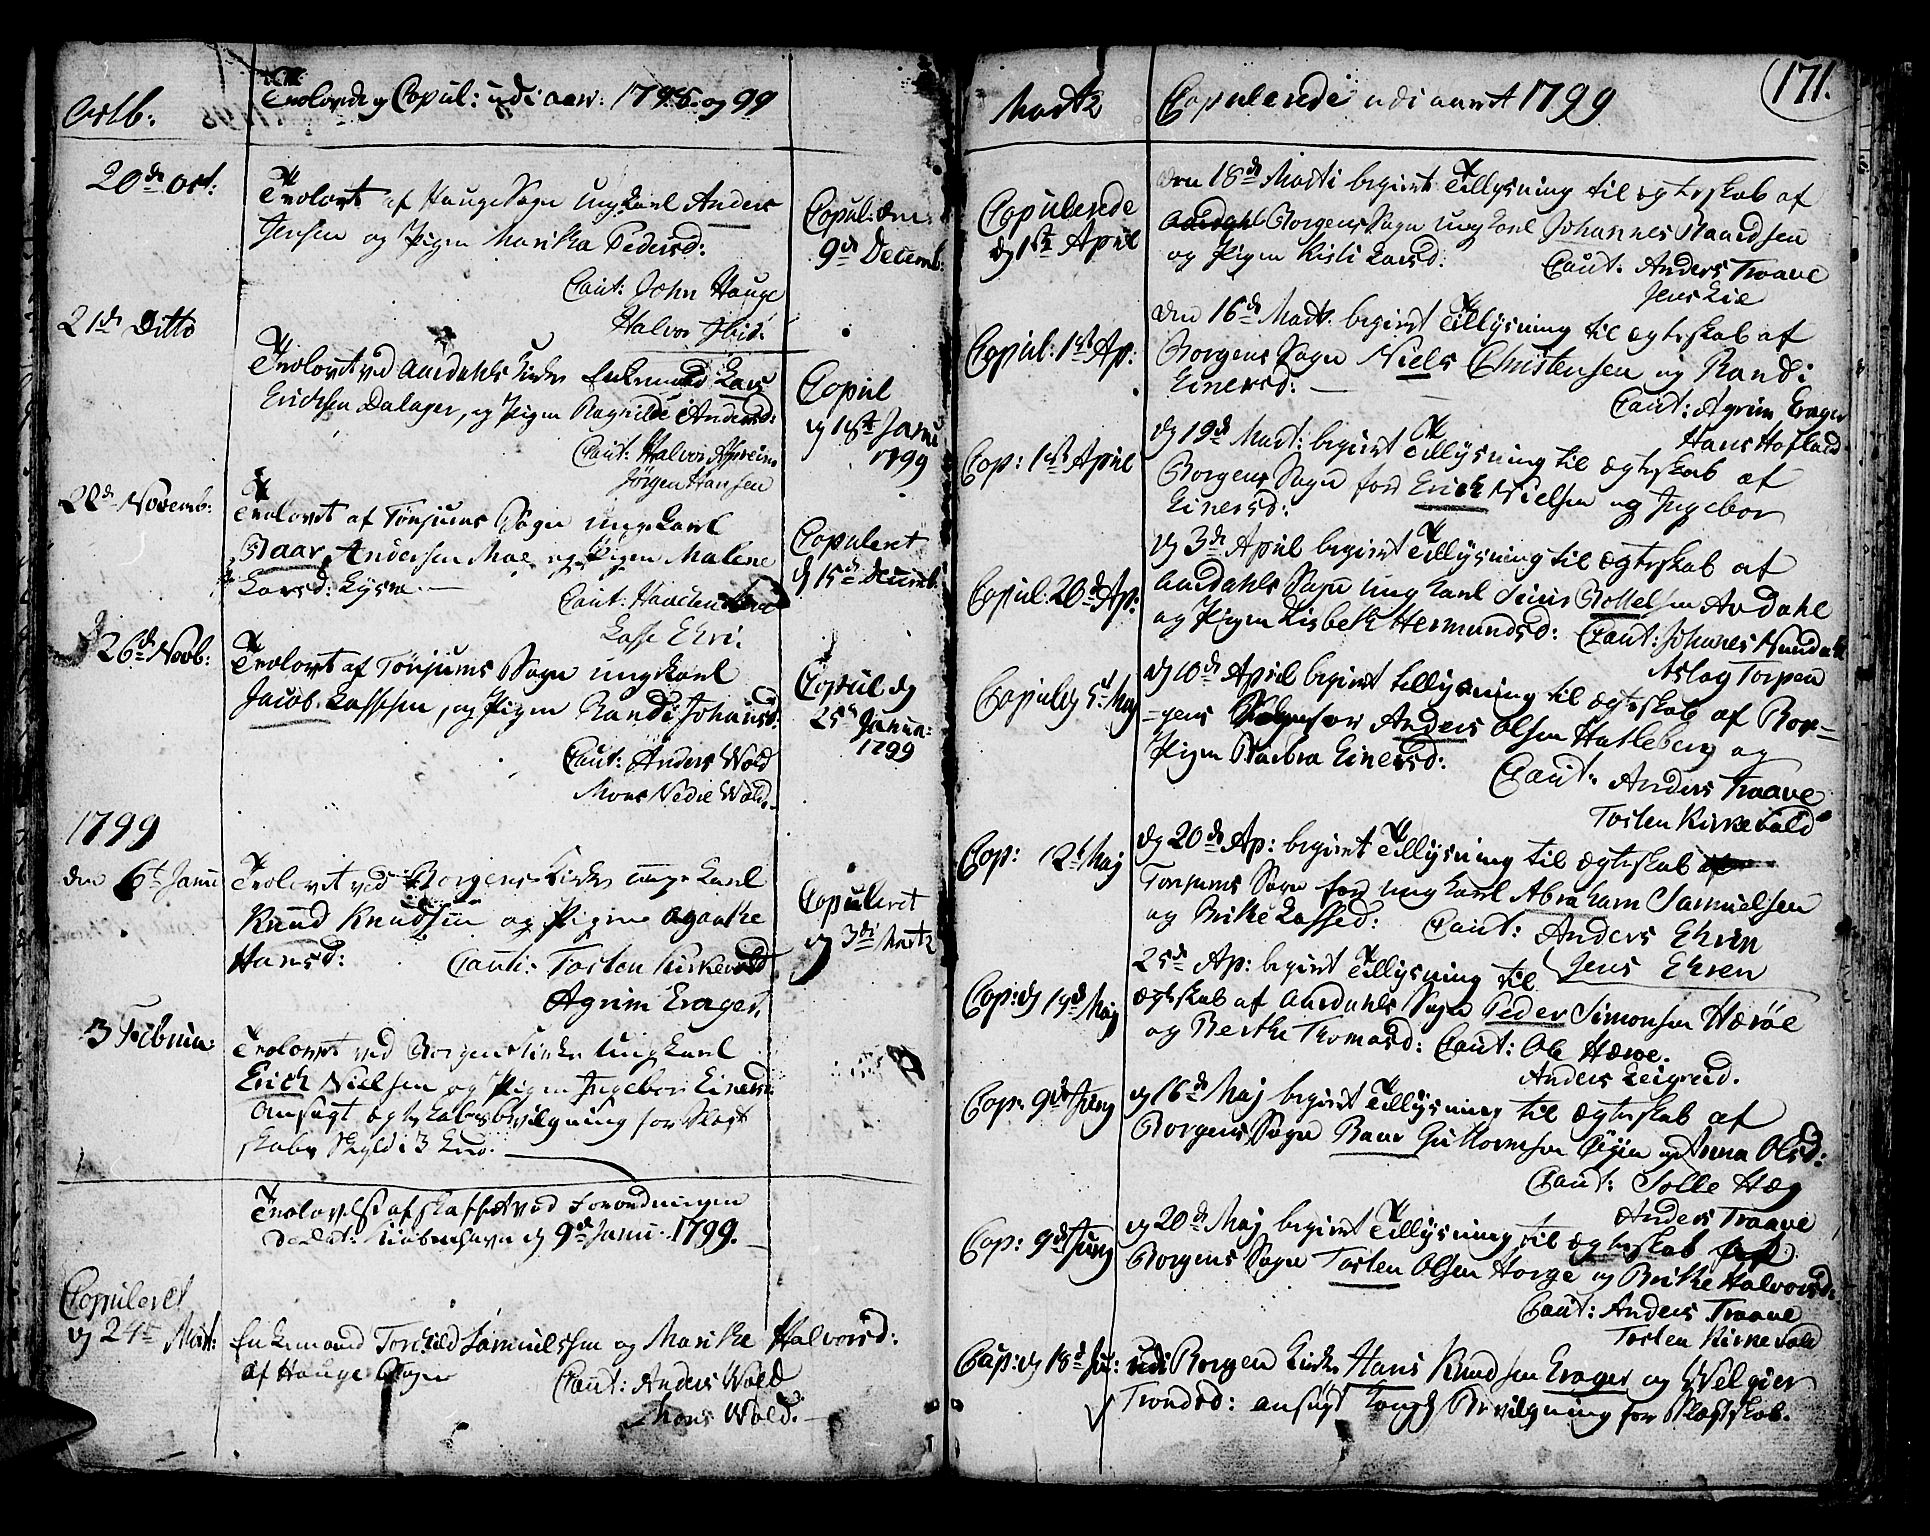 Octb:
Trolovede og Copul: udi aar: 1798. og 99
20de Oct:
Trolovet af Hauge Sogn Ungkarl Anders
Jensen og Pigen Maritha Pedersd:
Caut: John Hauge
Halvor Ibid:
Copul: den
9de Decemb:
21de Ditto
Trolovet ved Aurdahls Kirke Enkemand Lars
Erichsen Dalager, og Pigen Ragnilde Andersd:
Caut: Halvor
Jørgen Hansen
Copul
dg 18de Janu
1799
22de Novemb:
Trolovet af Tønjums Sogn ungkarl
Baar Andersen Moe og Pigen Malene
Larsd: Lysne
Caut: Haachen
Lasse Ehri:
Copuleret
d 15de Decemb:
26de Novb:
Trolovet af Tønjums Sogn ungkarl
Jacob Lassesen, og Pigen Randi Johansd:
Caut: Anders Wold
Mons Nedre Wold.
Copul dg
25de Janua:
1799
1799
den 6te Janu
Trolovet ved Borgens Kirke ungkarl
Knud Knudsen og Pigen Agaathe
Hansd: Cauti: Tosten Kirkevold
Agrim Erager.
Copuleret
dg 3di Martz
3 Februa:
Trolovet ved Borgens Kirke Ungkarl
Erich Nielsen og Pigen Ingebor Einersd:
Ansøgt Egteskabs bevilgning for Slægt
skabs Skyld i 3 Leed.
Trolovelse afskaffet ved Forordningen
De Dat: Kiøbenhavn dg 9de Janu: 1799.
Copuleret
dg 24de Mart:
Enkemand Torkild Samuelssen og Marithe Halvorsd:
af Hauge Sogn
Caut: Anders Wold
Mons Wold.
Martz
Copulerede udi aaret 1799
171.
Copulerede
dg 1ste April
den 18de Marti begiert Tillysning til Egteskab af
Borgens Sogn ungkarl Johannes Baardsen
og Pigen Kisti Larsd: Caut: Anders Traave
Jens Lie
Copul: 1ste Ap:
den 16de Mart: begiert Tillysning til Egteskab af
Borgens Sogn Niels Christensen og Randi
Einersd:
Caut: Agrim Erager
Hans Hofland
Cop: 1ste April
dg 19de Mart: begiert Tillysning til Egteskab af
Borgens Sogn for Erich Nielsen og Ingebor
Einersd:
Copul: 20de Ap:
dg 3de April begiert Tillysning til Egteskab af
Aurdahls Sogn ungkarl Siur Bottelsen Aurdahl
og Pigen Lisbeth Hermundsd: Caut: Johanes Hunda
Aslag Torpen
Copul dg 5te Maj
dg 10de April begiert tillysning til Egteskab af Bor=
=gens for Anders Olsen Hatleberg og
Pigen Barbra Einersd:
Caut: Anders Traave
Tosten Kirkevold
Cop: 12te Maj
dg 20de Ap: begiert Tillysning til Egteskab af
Tønjums Sogn for ungkarl Abraham Samuelsen
og Brithe Lassed: Caut: Anders Ehren
Jens Ehren
Cop: dg 19de Maj
25de Ap: begiert Tillysning til
Egteskab af Aurdahls Sogn Peder Simonsen Hæröe
og Berthe Tromasd: Caut: Ole Hærøe.
Anders Leigreid.
Cop: 9de Juny
dg 16de Maj begiert Tillysning til Egteskab af
Borgens Sogn Baar Guttormsen Øigen og Anna Olsd:
Caut: Solle Hæg
Anders Traave
Cop: 9de Juny
dg 20de Maj begiert Tillysning til Egteskab af
Borgens Sogn Tosten Olsen Horge og Brithe Halvorsd:
Caut: Anders Traave
Tosten Kirkevold
Cop: dg 18de Ju:
udi Borgen Kirke Hans Knudsen Erager og Welgier
Trondsd: ansøgt Kongl Bevilgning for Slægtskab.